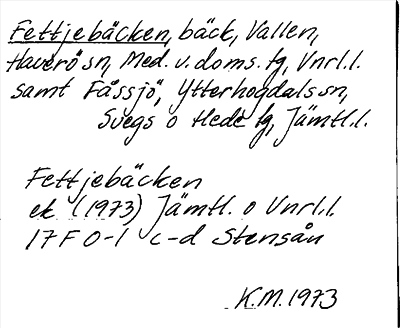 Fettjebäcken, bäck, Vallen,
Haverö sn, Med. v. doms. tg, Vnrl.l.
samt Fåssjö, Ytterhogdals sn,
Svegs o Hede tg, Jämtl.l.
Fettjebäcken
ek. (1973) Jämtl. o Vnrl.l.
17F 0-1 c-d Stensån
K.M. 1973